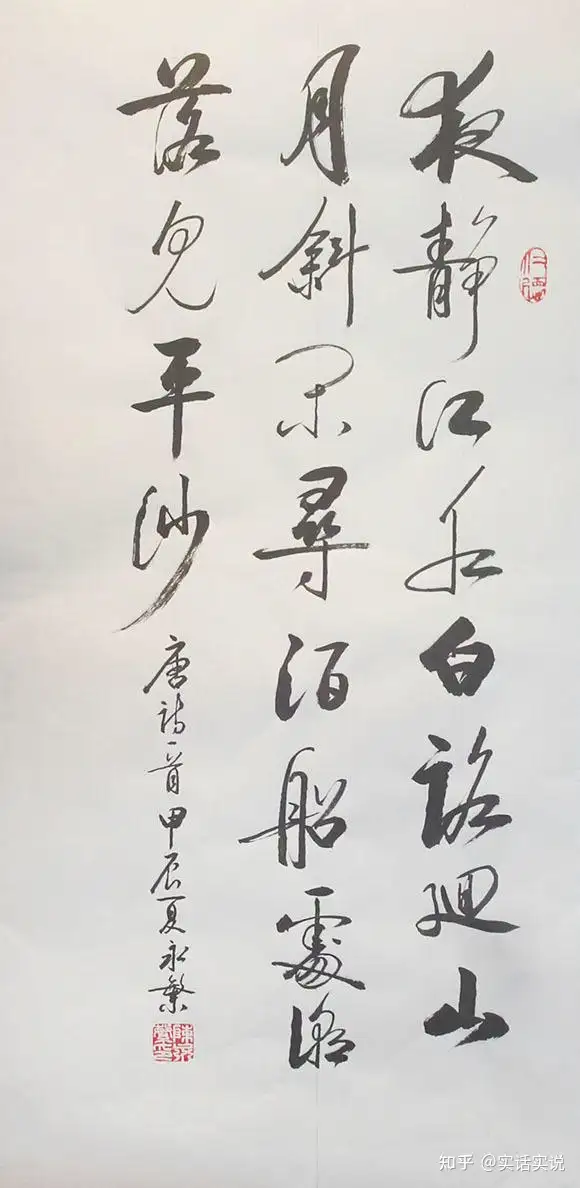 夜靜江水白路迴山
月斜閑尋泊船處潮
落見平沙
唐詩一首甲辰夏永繁
知乎 @实话实说